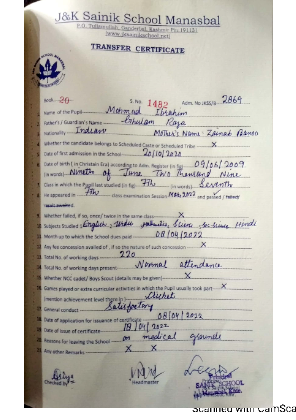 J&K Sainik School Manasbal
TRANSFER CERTIFICATE
S.No. 1482 Adm. No. JKSS/R- 2869
Name of the Pupil Mohmad Ibrahim
Father's / Guardian's Name Ghulam Raza
Nationality Indian Mother's Name Zainab Banoo
Whether the candidate belongs to Scheduled Caste or Scheduled Tribe X
Date of first admission in the School 20/10/2020
Date of birth (in Christein Era) according to Adm. Register (in fig) 09/06/2009
(in Words) Nineth of June Two Thousand Nine
Class in which the Pupil last studied (in fig) 7th (in words) Seventh
class examination Session and passed / failed
Whether failed, if so, once/ twice in the same class X
Subjects Studied English, Urdu Science Hindi
Month up to which the School dues paid 08/04/2022
Any fee concession availed of, if so the nature of such concession X
Total No. of working days 220
Total No. of working days present Normal attendance
Whether NCC cadet/ Boys Scout (details may be given) X
Games played or extra curricular activities in which the Pupil usually took part X
(mention achievement level there in) Cricket
General conduct Satisfactory
Date of application for issuance of certificate 08/04/2022
Date of issue of certificate 18/04/2022
Reasons for leaving the School on medical grounds
Any other Remarks X X
Checked by Headmaster Principal
SAINIK SCHOOL
Scanned with CamSca